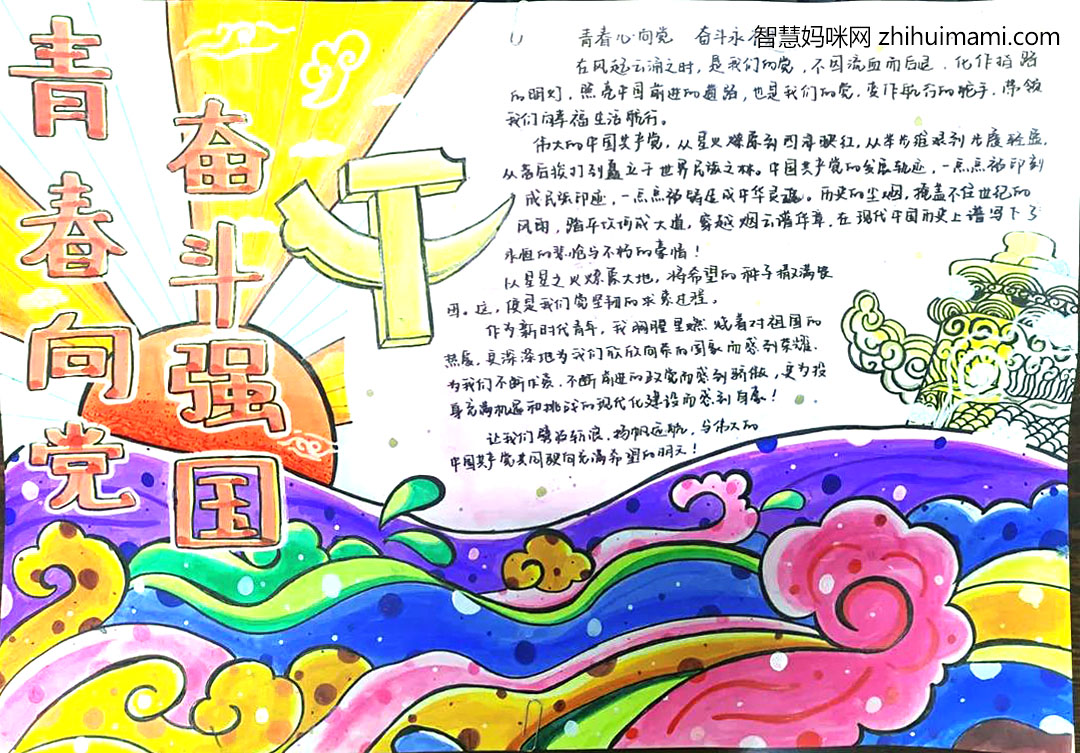 青春向党
奋斗强国
智慧妈咪网 zhihuimami.com
青春心向党 奋斗永
在风起云涌之时，是我们的党，不因流血而后退，化作指路
的明灯，照亮中国前进的道路，也是我们的党，变作航行的舵手，带领
我们向幸福生活航行。
伟大的中国共产党，从星火燎原到四海映红，从半步维艰到步履轻盈，
从落后挨打到矗立于世界民族之林。中国共产党的发展轨迹，一点点被印刻
成民族印迹，一点点被铸造成中华灵魂。历史的尘烟，掩盖不住世纪的
风雨，踏平坎坷成大道，穿越烟云谱华章，在现代中国历史上谱写下了
永恒的悲怆与不朽的豪情！
从星星之火燎原大地，将希望的种子撒满
。这，便是我们党坚韧的求索过程。
作为新时代青年，我胸腔里燃烧着对祖国的
热爱，更深深地为我们欣欣向荣的国家而感到荣耀，
为我们不断求索、不断前进的政党而感到骄傲，更为投
身充满机遇和挑战的现代化建设而感到自豪！
让我们劈波斩浪，扬帆远航，与伟大的
中国共产党共同驶向充满希望的明天！